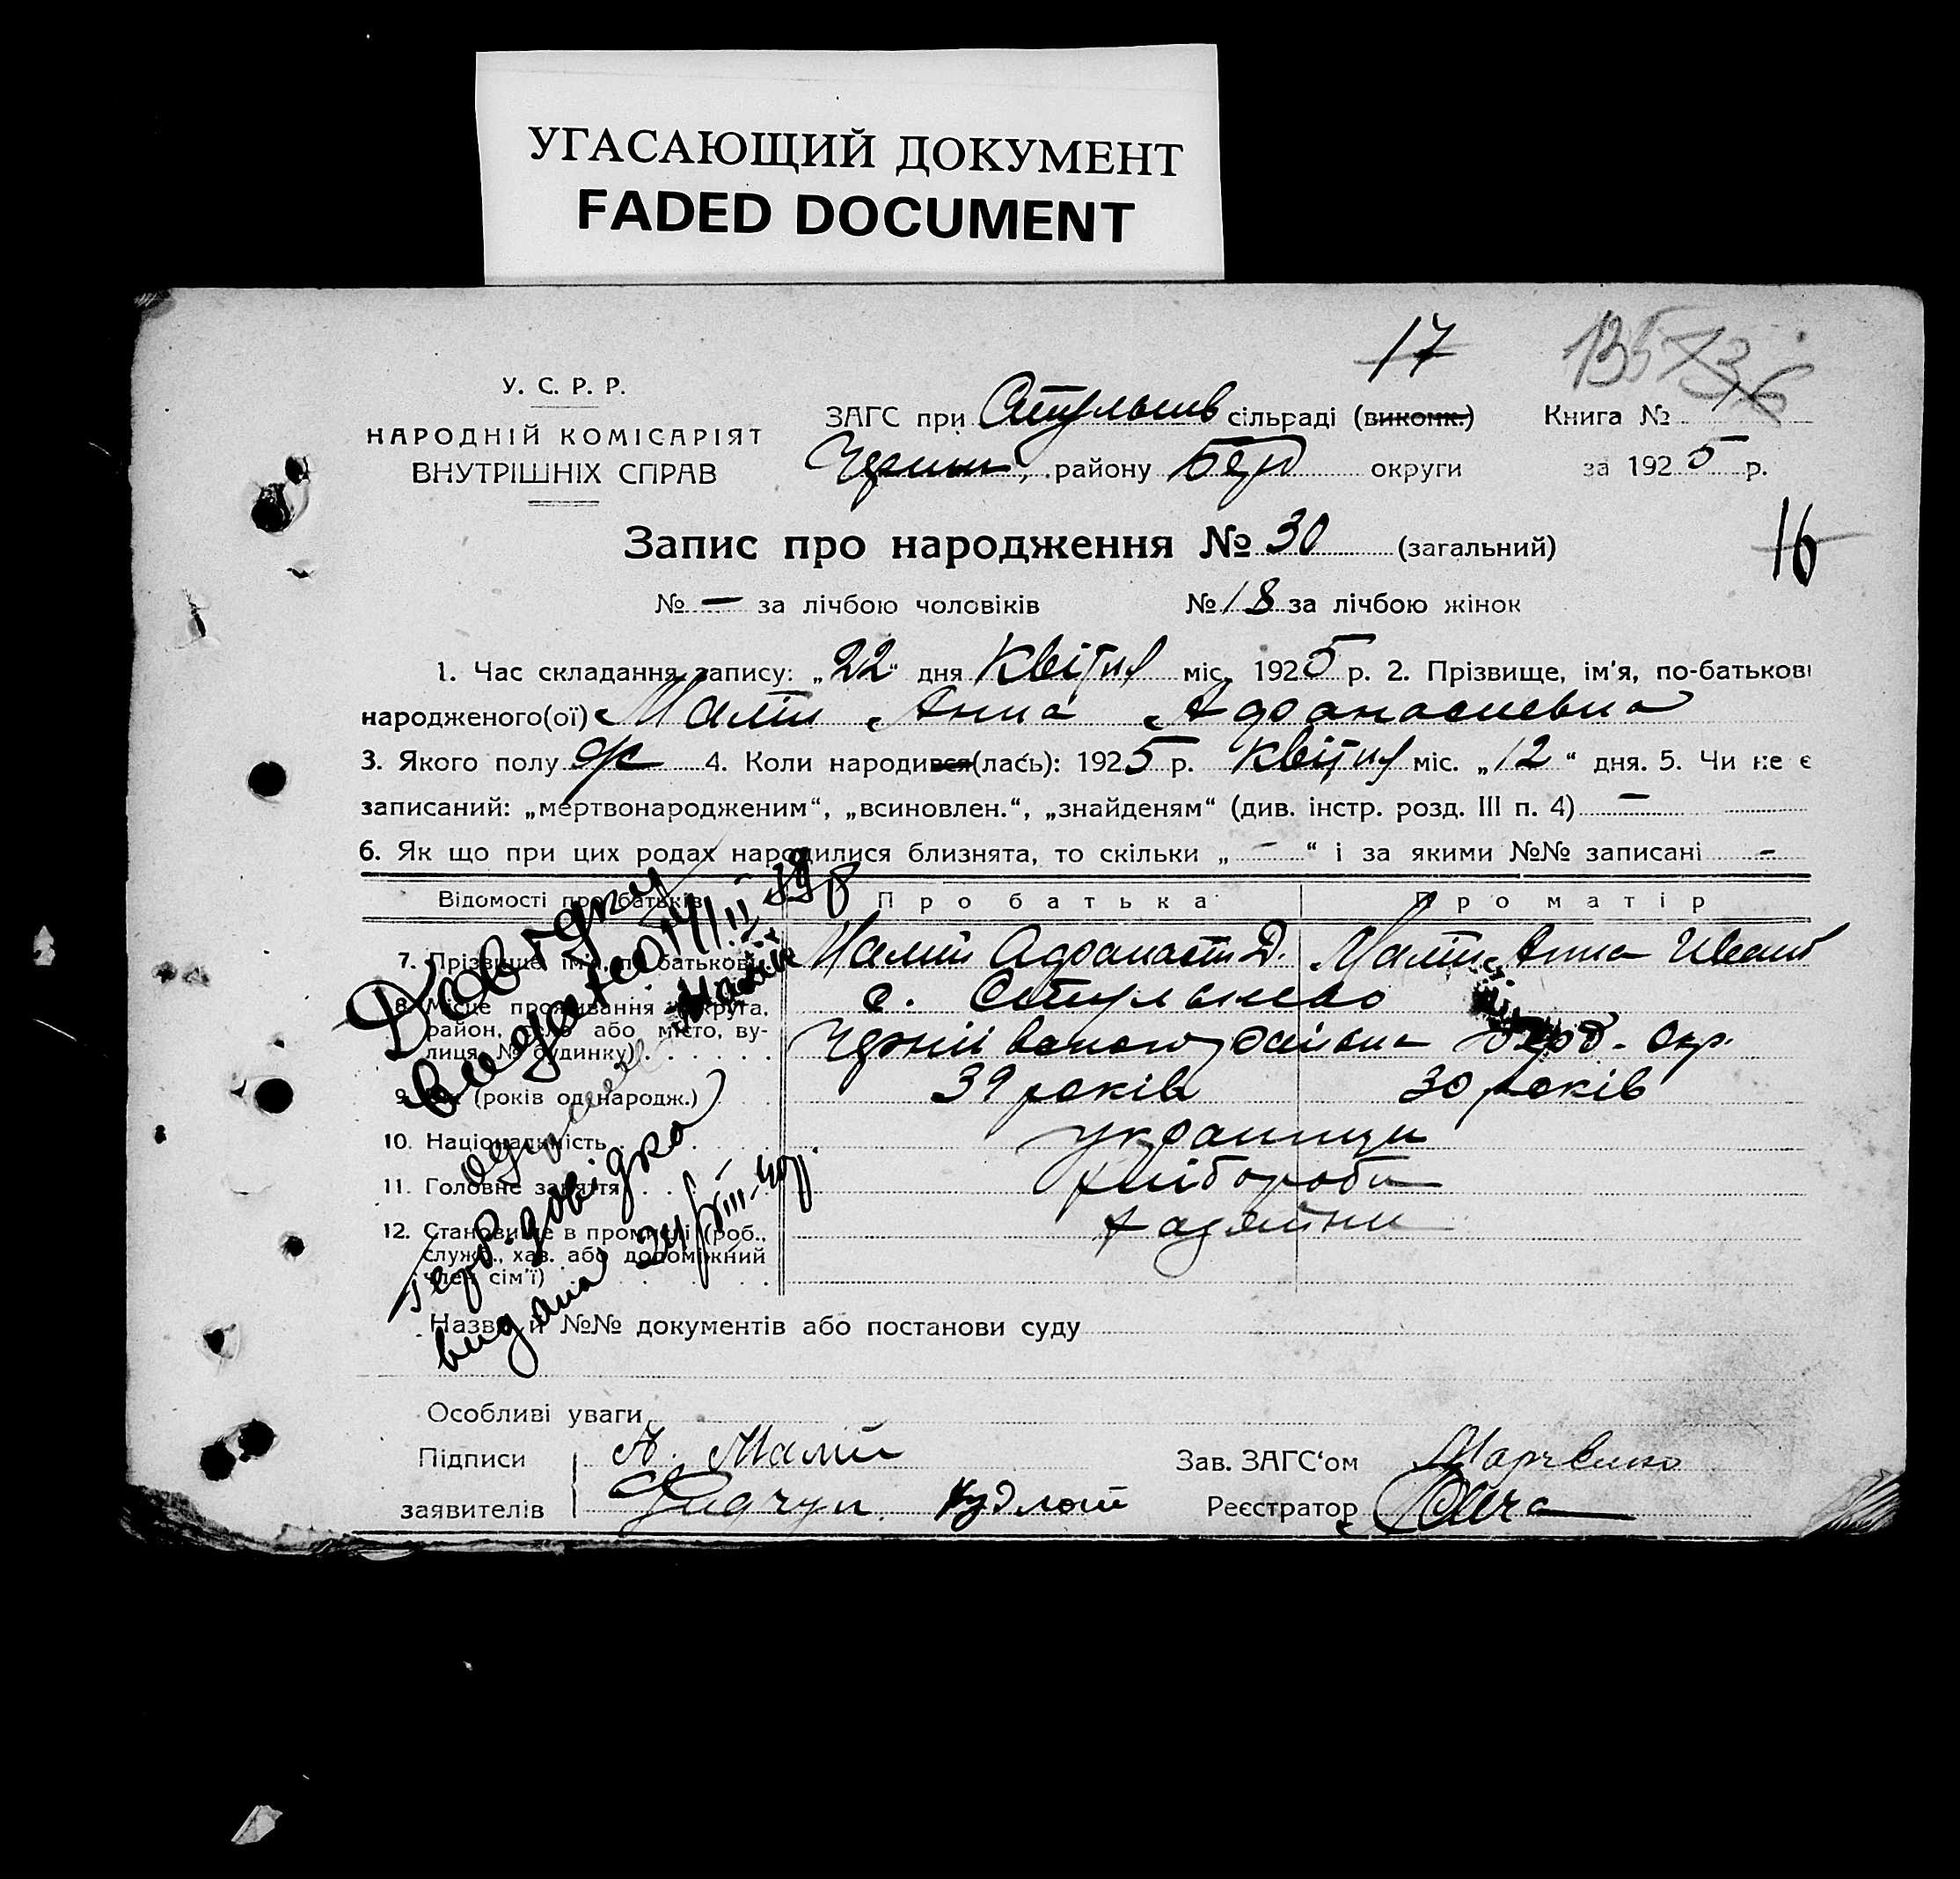 УГАСАЮЩИЙ ДОКУМЕНТ
FADED DOCUMENT
17
У. С. Р. Р.
НАРОДНІЙ КОМІСАРІЯТ
ВНУТРІШНІХ СПРАВ
ЗАГС при сільраді (виконк.) Книга № 1
району Бер округи за 1925 р.
16
Запис про народження № 30 (загальний)
№ — за лічбою чоловіків № 18 за лічбою жінок
1. Час складання запису: „22" дня Квітня міс. 1925 р. 2. Прізвище, ім'я, по-батькові
народженого(ої) Малій Анна Афанасиевна
3. Якого полу ж 4. Коли народився(лась): 1925 р. Квітня міс. „12" дня. 5. Чи не є
записаний: „мертвонародженим", „всиновлен.", „знайденям" (див. інстр. розд. III п. 4) —
6. Як що при цих родах народилися близнята, то скільки „ - " і за якими №№ записані -
Відомості про батьків Про батька Про матір
7. Прізвище, ім'я, по батькові Малій Афанасій Д. Малій Анна Иванів
8. Місце проживання (округа, с.
район, село або місто, ву- району Берд. окр.
лиця, № будинку)
9. Вік (років од народж.) 39 років 30 років
10. Національність українци
11. Головне заняття хлібороби
12. Становище в промислі (роб.,
служб., хаз. або допоміжний
член сім'ї)
Довідку
видано
довідка
видана
Назва й №№ документів або постанови суду
Особливі уваги
Підписи А. Малий Зав. ЗАГС'ом Марченко
заявителів Реєстратор